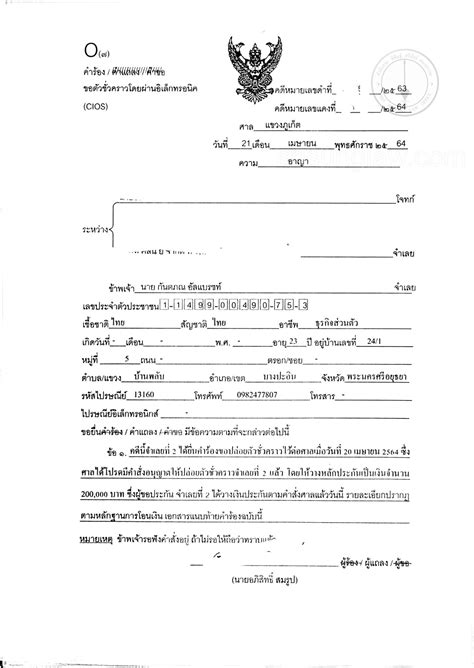 O(๗)
คำร้อง / คำแถลง / คำขอ
ขอตัวชั่วคราวโดยผ่านอิเล็กทรอนิค
(CIOS)
คดีหมายเลขดำที่ /๒๕ 63
คดีหมายเลขแดงที่ /๒๕ 64
ศาล แขวงภูเก็ต
วันที่ 21 เดือน เมษายน พุทธศักราช ๒๕ 64
ความ อาญา
โจทก์
ระหว่าง
จำเลย
ข้าพเจ้า นาย กันตภณ อัลแบรซท์ จำเลย
เลขประจำตัวประชาชน 1-1499-00490-75-3
เชื้อชาติ ไทย สัญชาติ ไทย อาชีพ ธุรกิจส่วนตัว
เกิดวันที่ - เดือน - พ.ศ. - อายุ 23 ปี อยู่บ้านเลขที่ 24/1
หมู่ที่ 5 ถนน - ตรอก/ซอย -
ตำบล/แขวง บ้านพลับ อำเภอ/เขต บางปะอิน จังหวัด พระนครศรีอยุธยา
รหัสไปรษณีย์ 13160 โทรศัพท์ 0982477807 โทรสาร -
ไปรษณีย์อิเล็กทรอนิกส์ -
ขอยื่นคำร้อง / คำแถลง / คำขอ มีข้อความตามที่จะกล่าวต่อไปนี้
ข้อ ๑. คดีนี้จำเลยที่ 2 ได้ยื่นคำร้องขอปล่อยตัวชั่วคราวไว้ต่อศาลเมื่อวันที่ 20 เมษายน 2564 ซึ่ง
ศาลได้โปรดมีคำสั่งอนุญาตให้ปล่อยตัวชั่วคราวจำเลยที่ 2 แล้ว โดยให้วางหลักประกันเป็นเงินจำนวน
200,000 บาท ซึ่งผู้ขอประกัน จำเลยที่ 2 ได้วางเงินประกันตามคำสั่งศาลแล้ววันนี้ รายละเอียดปรากฏ
ตามหลักฐานการโอนเงิน เอกสารแนบท้ายคำร้องฉบับนี้
หมายเหตุ ข้าพเจ้ารอฟังคำสั่งอยู่ ถ้าไม่รอให้ถือว่าทราบแล้ว
ผู้ร้อง / ผู้แถลง / ผู้ขอ
(นายอภิสิทธิ์ สมรูป)